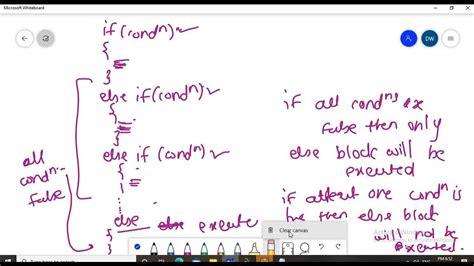 Microsoft Whiteboard
DW
if (condn)
{
}
else if (condn)
{
}
else if (condn)
{
}
else else execute
{
all
condn
false
if all condn
false then only
else block will be
executed
if atleast one condn is
then else block
will not be
executed.
Clear canvas